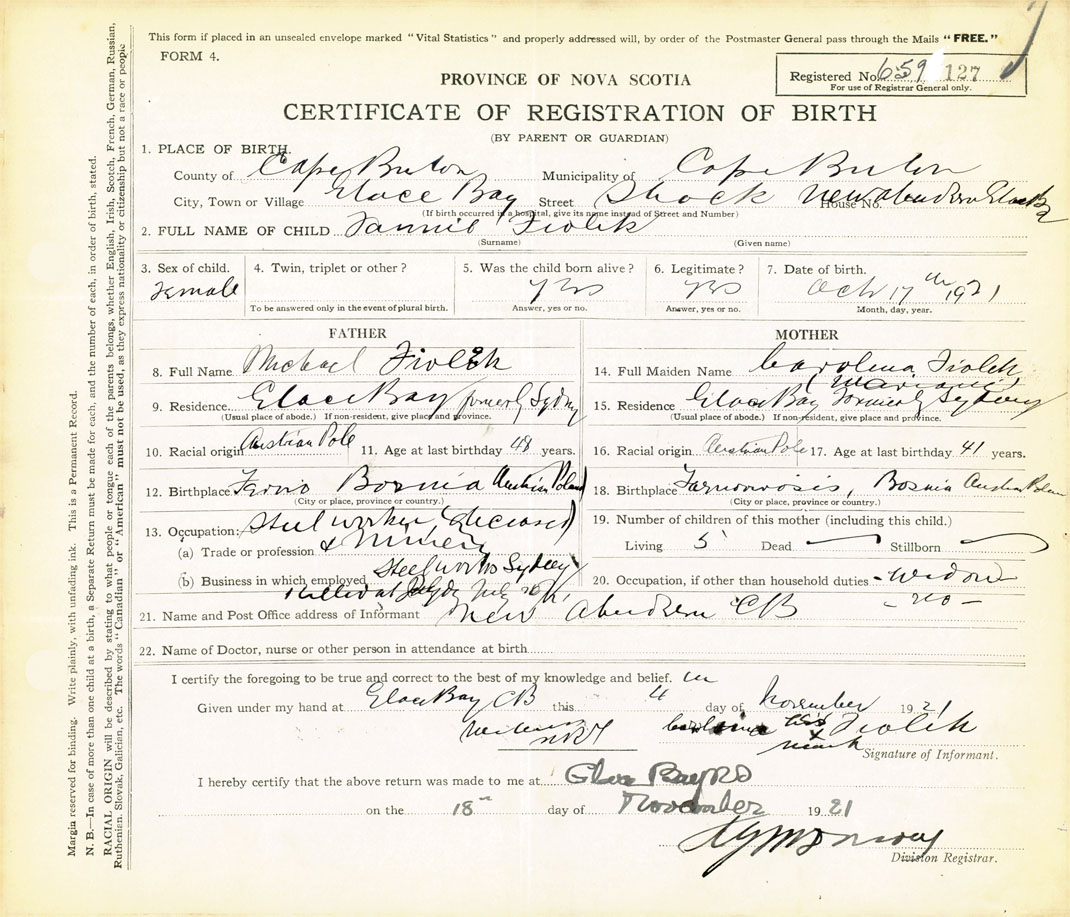 This form if placed in an unsealed envelope marked "Vital Statistics" and properly addressed will, by order of the Postmaster General pass through the Mails "FREE."
FORM 4.
PROVINCE OF NOVA SCOTIA
Registered No. 659 127
For use of Registrar General only.
CERTIFICATE OF REGISTRATION OF BIRTH
(BY PARENT OR GUARDIAN)
1. PLACE OF BIRTH.
County of Cape Breton Municipality of Cape Breton
City, Town or Village Glace Bay Street Shack House No. New Aberdeen Glace B
(If birth occurred in a hospital, give its name instead of Street and Number)
2. FULL NAME OF CHILD Fannie Fiolek
(Surname) (Given name)
3. Sex of child. 4. Twin, triplet or other? 5. Was the child born alive? 6. Legitimate? 7. Date of birth.
Female yes yes Oct 17th 1921
To be answered only in the event of plural birth. Answer, yes or no. Answer, yes or no. Month, day, year.
FATHER
8. Full Name Michael Fiolek
9. Residence Glace Bay formerly Sydney
(Usual place of abode.) If non-resident, give place and province.
10. Racial origin Austrian Pole 11. Age at last birthday 48 years.
12. Birthplace Bosnia Austrian Poland
(City or place, province or country.)
13. Occupation: Steel worker (deceased)
(a) Trade or profession & Miner
(b) Business in which employed Steelworks Sydney
Killed at July
MOTHER
14. Full Maiden Name Carolina Fiolek
15. Residence Glace Bay formerly Sydney
(Usual place of abode.) If non-resident, give place and province.
16. Racial origin Austrian Pole 17. Age at last birthday 41 years.
18. Birthplace Bosnia Austrian
(City or place, province or country.)
19. Number of children of this mother (including this child.)
Living 5 Dead Stillborn
20. Occupation, if other than household duties - widow
- no -
21. Name and Post Office address of Informant New Aberdeen CB
22. Name of Doctor, nurse or other person in attendance at birth
I certify the foregoing to be true and correct to the best of my knowledge and belief.
Given under my hand at Glace Bay CB this 4 day of November 1921
Carolina his X mark Fiolek
Signature of Informant.
I hereby certify that the above return was made to me at Glace Bay
on the 18 day of November 1921
Division Registrar.
Margin reserved for binding. Write plainly, with unfading ink. This is a Permanent Record.
N. B.—In case of more than one child at a birth, a Separate Return must be made for each, and the number of each, in order of birth, stated.
RACIAL ORIGIN will be described by stating to what people or tongue each of the parents belongs, whether English, Irish, Scotch, French, German, Russian,
Ruthenian, Slovak, Galician, etc. The words "Canadian" or "American" must not be used, as they express nationality or citizenship but not a race or people